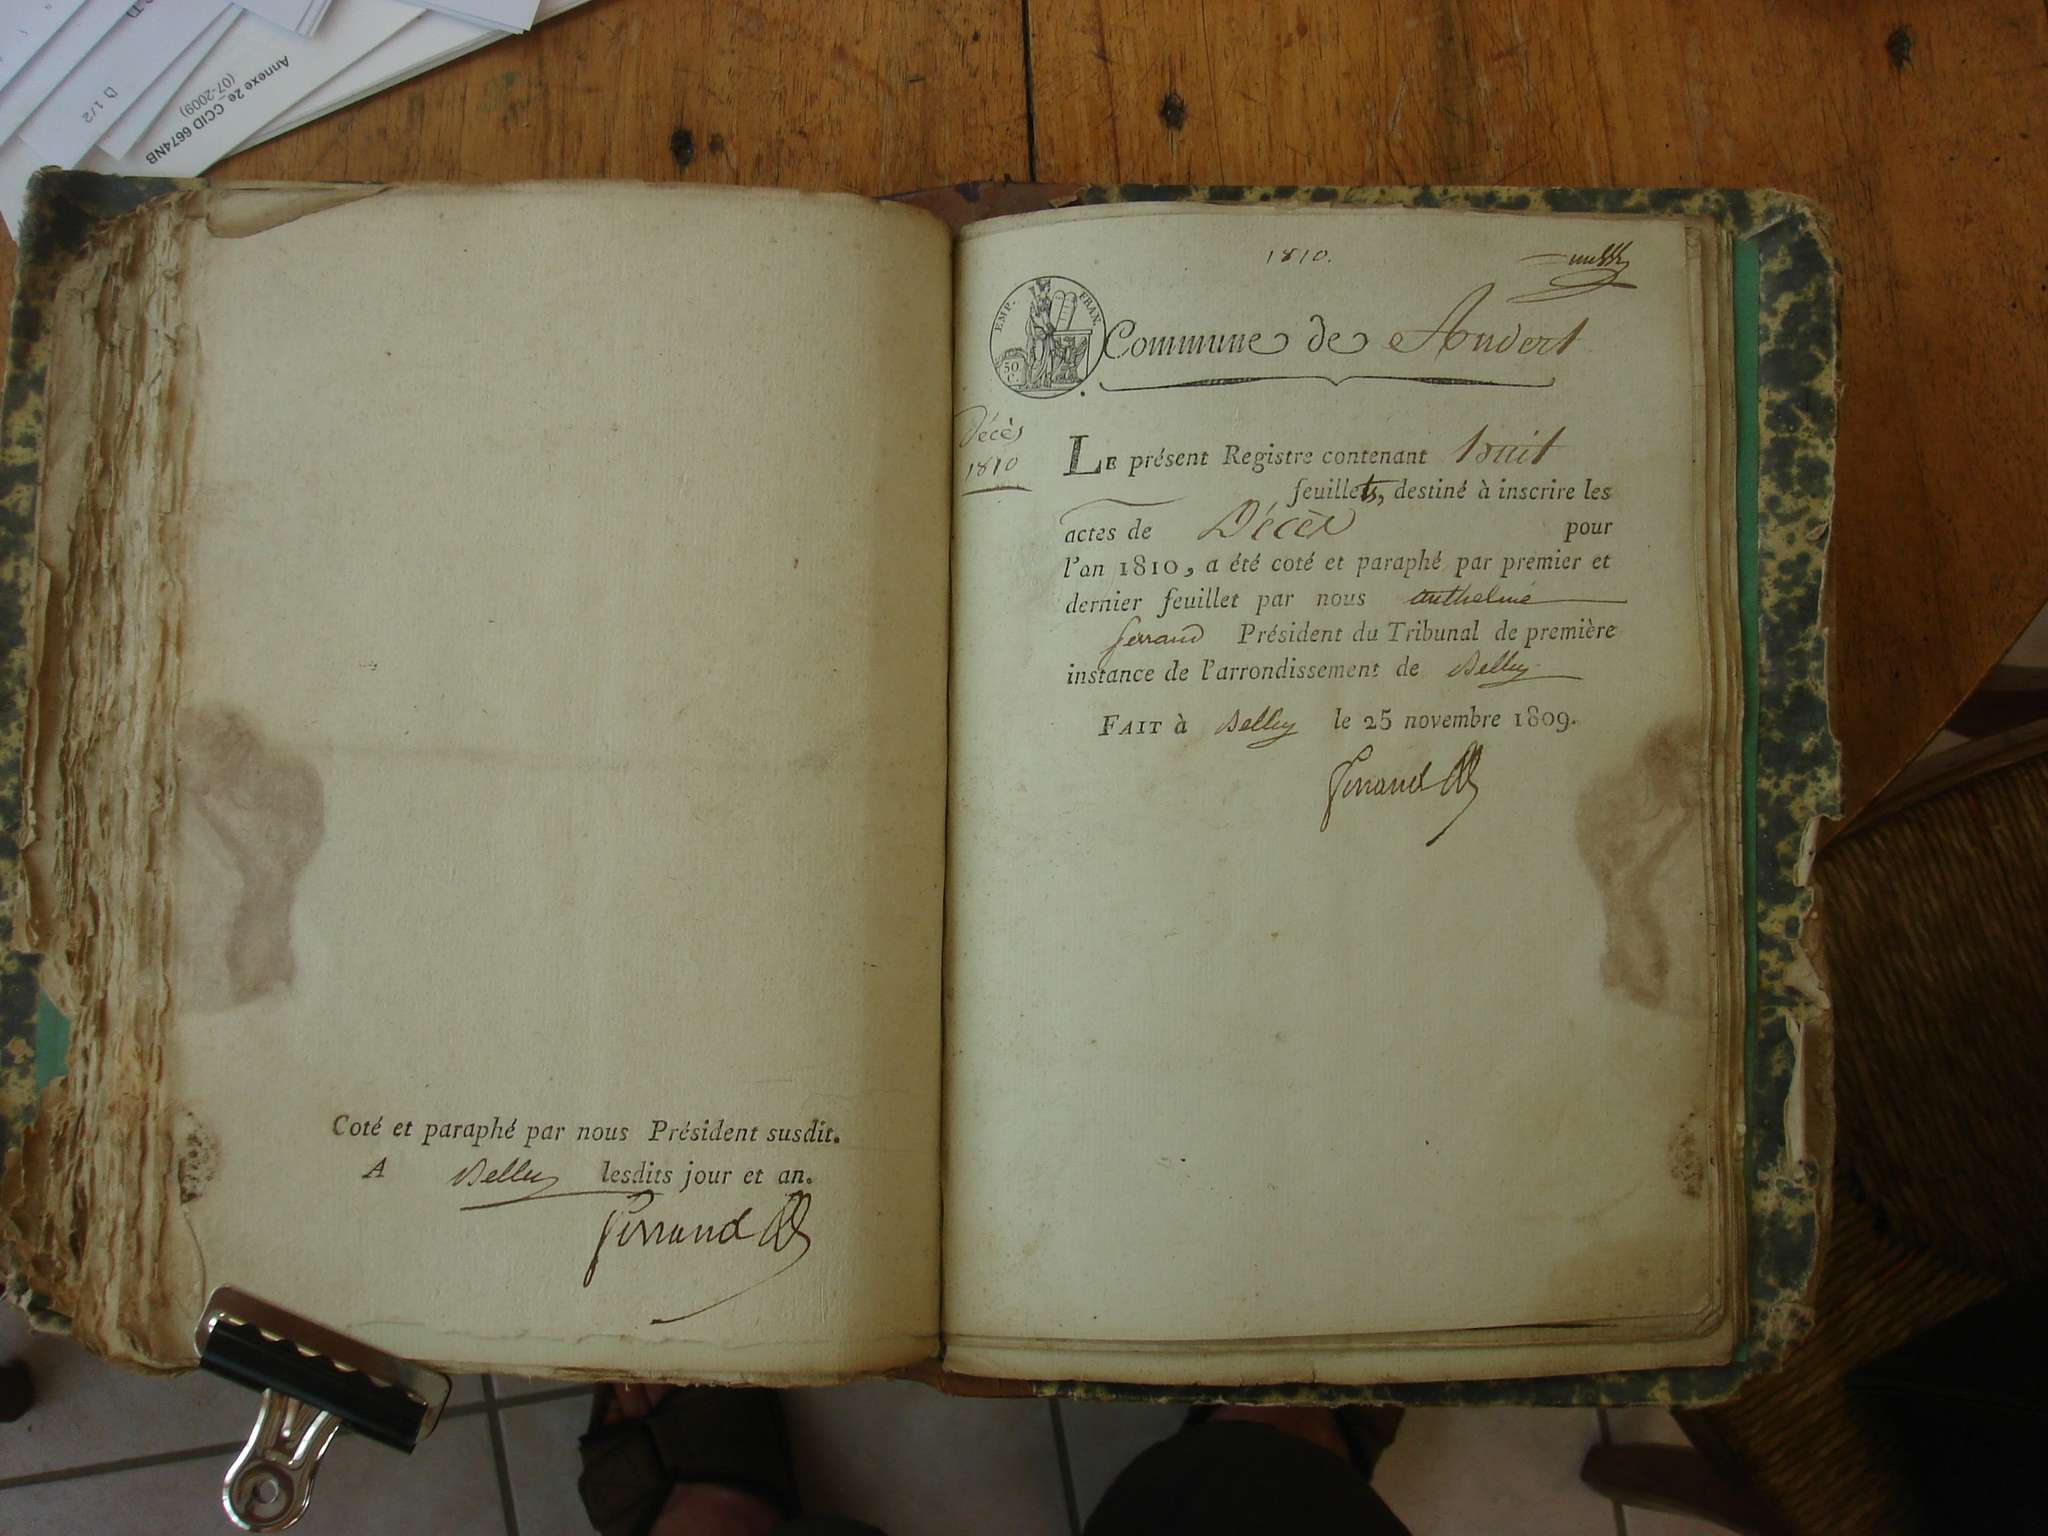 D 1/2
Annexe 2e_CCID 6674NB
(07-2009)
Coté et paraphé par nous Président susdit.
A Belley lesdits jour et an.
Ferrand
1810.
EMP. FRAN.
50
C.
Commune de Andert
Décès
1810
LE présent Registre contenant huit
feuillets, destiné à inscrire les
actes de Décès pour
l'an 1810, a été coté et paraphé par premier et
dernier feuillet par nous anthelme
ferrand Président du Tribunal de première
instance de l'arrondissement de Belley
FAIT à Belley le 25 novembre 1809.
Ferrand